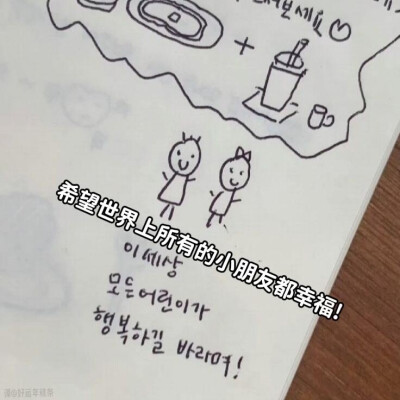 보세요
希望世界上所有的小朋友都幸福!
이 세상
모든 어린이가
행복하길 바라며!